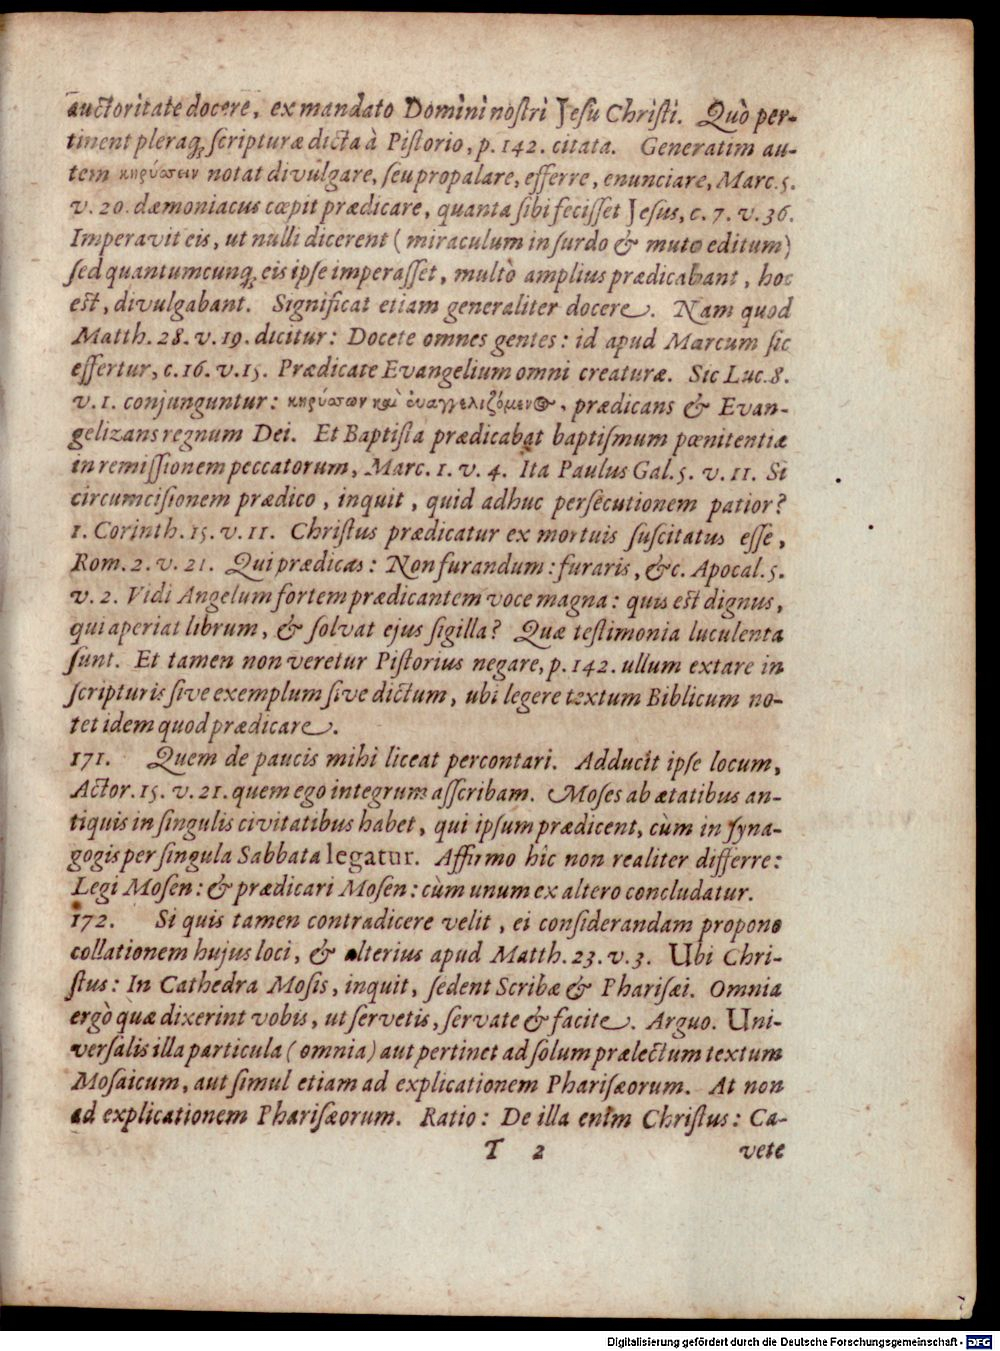 auctoritate docere, ex mandato Domini nostri Jesu Christi. Quò per-
tinent pleraq; scripturæ dicta à Pistorio, p. 142. citata. Generatim au-
tem κηρύσσειν notat divulgare, seu propalare, efferre, enunciare, Marc. 5.
v. 20. dæmoniacus cœpit prædicare, quanta sibi fecisset Jesus, c. 7. v. 36.
Imperavit eis, ut nulli dicerent (miraculum in surdo & muto editum)
sed quantumcunq; eis ipse imperasset, multò amplius prædicabant, hoc
est, divulgabant. Significat etiam generaliter docere. Nam quod
Matth. 28. v. 19. dicitur: Docete omnes gentes: id apud Marcum sic
effertur, c. 16. v. 15. Prædicate Evangelium omni creaturæ. Sic Luc. 8.
v. 1. conjunguntur: κηρύσσων καὶ ἐυαγγελιζόμενος, prædicans & Evan-
gelizans regnum Dei. Et Baptista prædicabat baptismum pœnitentiæ
in remissionem peccatorum, Marc. 1. v. 4. Ita Paulus Gal. 5. v. 11. Si
circumcisionem prædico, inquit, quid adhuc persecutionem patior?
1. Corinth. 15. v. 11. Christus prædicatur ex mortuis suscitatus esse,
Rom. 2. v. 21. Qui prædicas: Non furandum: furaris, &c. Apocal. 5.
v. 2. Vidi Angelum fortem prædicantem voce magna: quis est dignus,
qui aperiat librum, & solvat ejus sigilla? Quæ testimonia luculenta
sunt. Et tamen non veretur Pistorius negare, p. 142. ullum extare in
scripturis sive exemplum sive dictum, ubi legere textum Biblicum no-
tet idem quod prædicare.
171. Quem de paucis mihi liceat percontari. Adducit ipse locum,
Actor. 15. v. 21. quem ego integrum asscribam. Moses ab ætatibus an-
tiquis in singulis civitatibus habet, qui ipsum prædicent, cùm in syna-
gogis per singula Sabbata legatur. Affirmo hîc non realiter differre:
Legi Mosen: & prædicari Mosen: cùm unum ex altero concludatur.
172. Si quis tamen contradicere velit, ei considerandam propono
collationem hujus loci, & alterius apud Matth. 23. v. 3. Ubi Chri-
stus: In Cathedra Mosis, inquit, sedent Scribæ & Pharisæi. Omnia
ergò quæ dixerint vobis, ut servetis, servate & facite. Arguo. Uni-
versalis illa particula (omnia) aut pertinet ad solum prælectum textum
Mosaicum, aut simul etiam ad explicationem Pharisæorum. At non
ad explicationem Pharisæorum. Ratio: De illa enim Christus: Ca-
T 2 vete
Digitalisierung gefördert durch die Deutsche Forschungsgemeinschaft - DFG